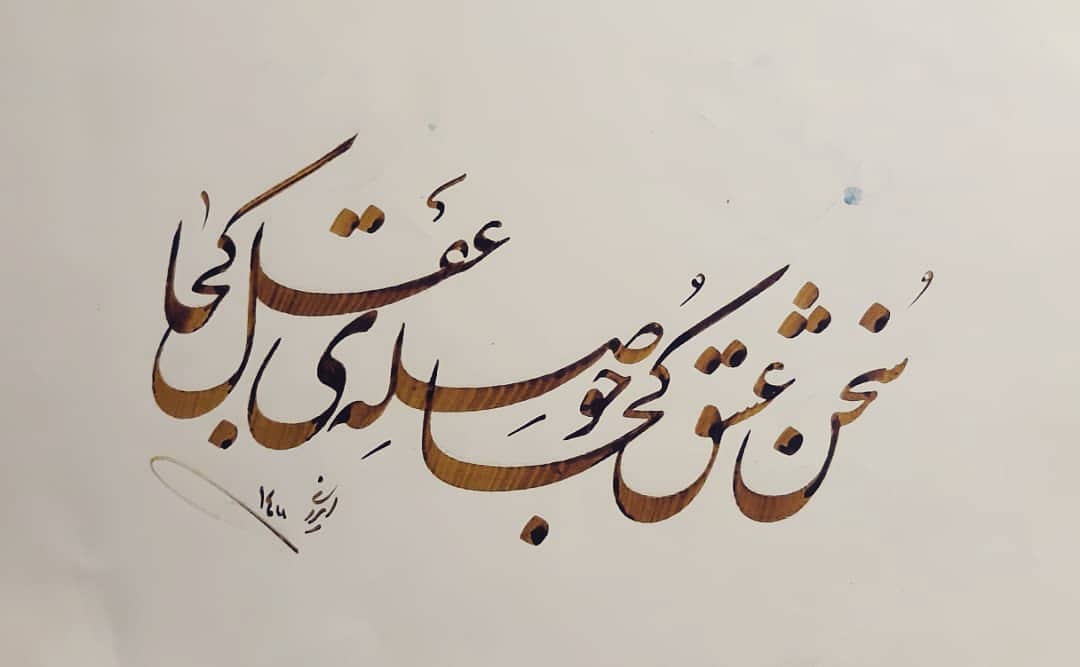 سُخن عشق کُجا حوصِلهِ‌ی عقل کجا
۱۴۰۰